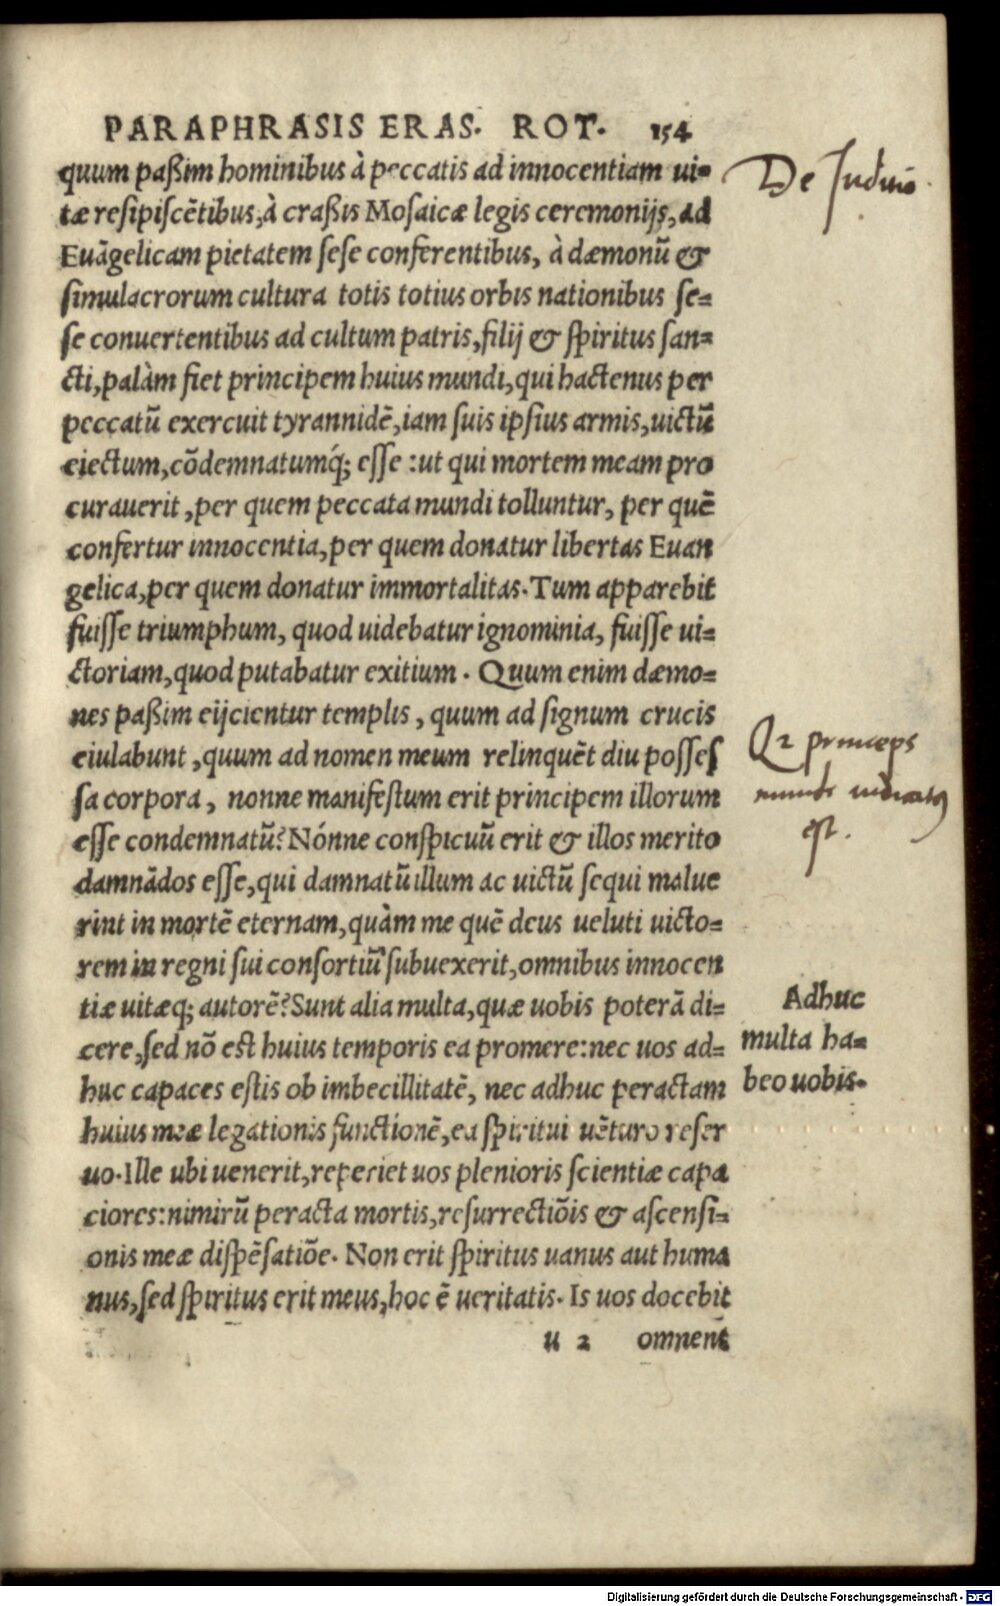 PARAPHRASIS ERAS. ROT. 154
quum paßim hominibus à peccatis ad innocentiam ui=
tæ resipiscētibus, à craßis Mosaicæ legis ceremonijs, ad
Euāgelicam pietatem sese conferentibus, à dæmonū &
simulacrorum cultura totis totius orbis nationibus se=
se conuertentibus ad cultum patris, filij & spiritus san=
cti, palàm fiet principem huius mundi, qui hactenus per
peccatū exercuit tyrannidē, iam suis ipsius armis, uictū
eiectum, cōdemnatumq́; esse : ut qui mortem meam pro
curauerit, per quem peccata mundi tolluntur, per quē
confertur innocentia, per quem donatur libertas Euan
gelica, per quem donatur immortalitas. Tum apparebit
fuisse triumphum, quod uidebatur ignominia, fuisse ui=
ctoriam, quod putabatur exitium. Quum enim dæmo=
nes paßim eijcientur templis, quum ad signum crucis
eiulabunt, quum ad nomen meum relinquēt diu posses
sa corpora, nonne manifestum erit principem illorum
esse condemnatū? Nónne conspicuū erit & illos merito
damnādos esse, qui damnatū illum ac uictū sequi malue
rint in mortē eternam, quàm me quē deus ueluti uicto=
rem in regni sui consortiū subuexerit, omnibus innocen
tiæ uitæq; autorē? Sunt alia multa, quæ uobis poterā di=
cere, sed nō est huius temporis ea promere: nec uos ad=
huc capaces estis ob imbecillitatē, nec adhuc peractam
huius meæ legationis functionē, ea spiritui uēturo reser
uo. Ille ubi uenerit, reperiet uos plenioris scientiæ capa
ciores: nimirū peracta mortis, resurrectiōis & ascensi=
onis meæ dispēsatiōe. Non erit spiritus uanus aut huma
nus, sed spiritus erit meus, hoc ē ueritatis. Is uos docebit
u 2 omnem
De Iudicio.
Qz princeps
mundi iudicatus
est.
Adhuc
multa ha=
beo uobis.
Digitalisierung gefördert durch die Deutsche Forschungsgemeinschaft - DFG